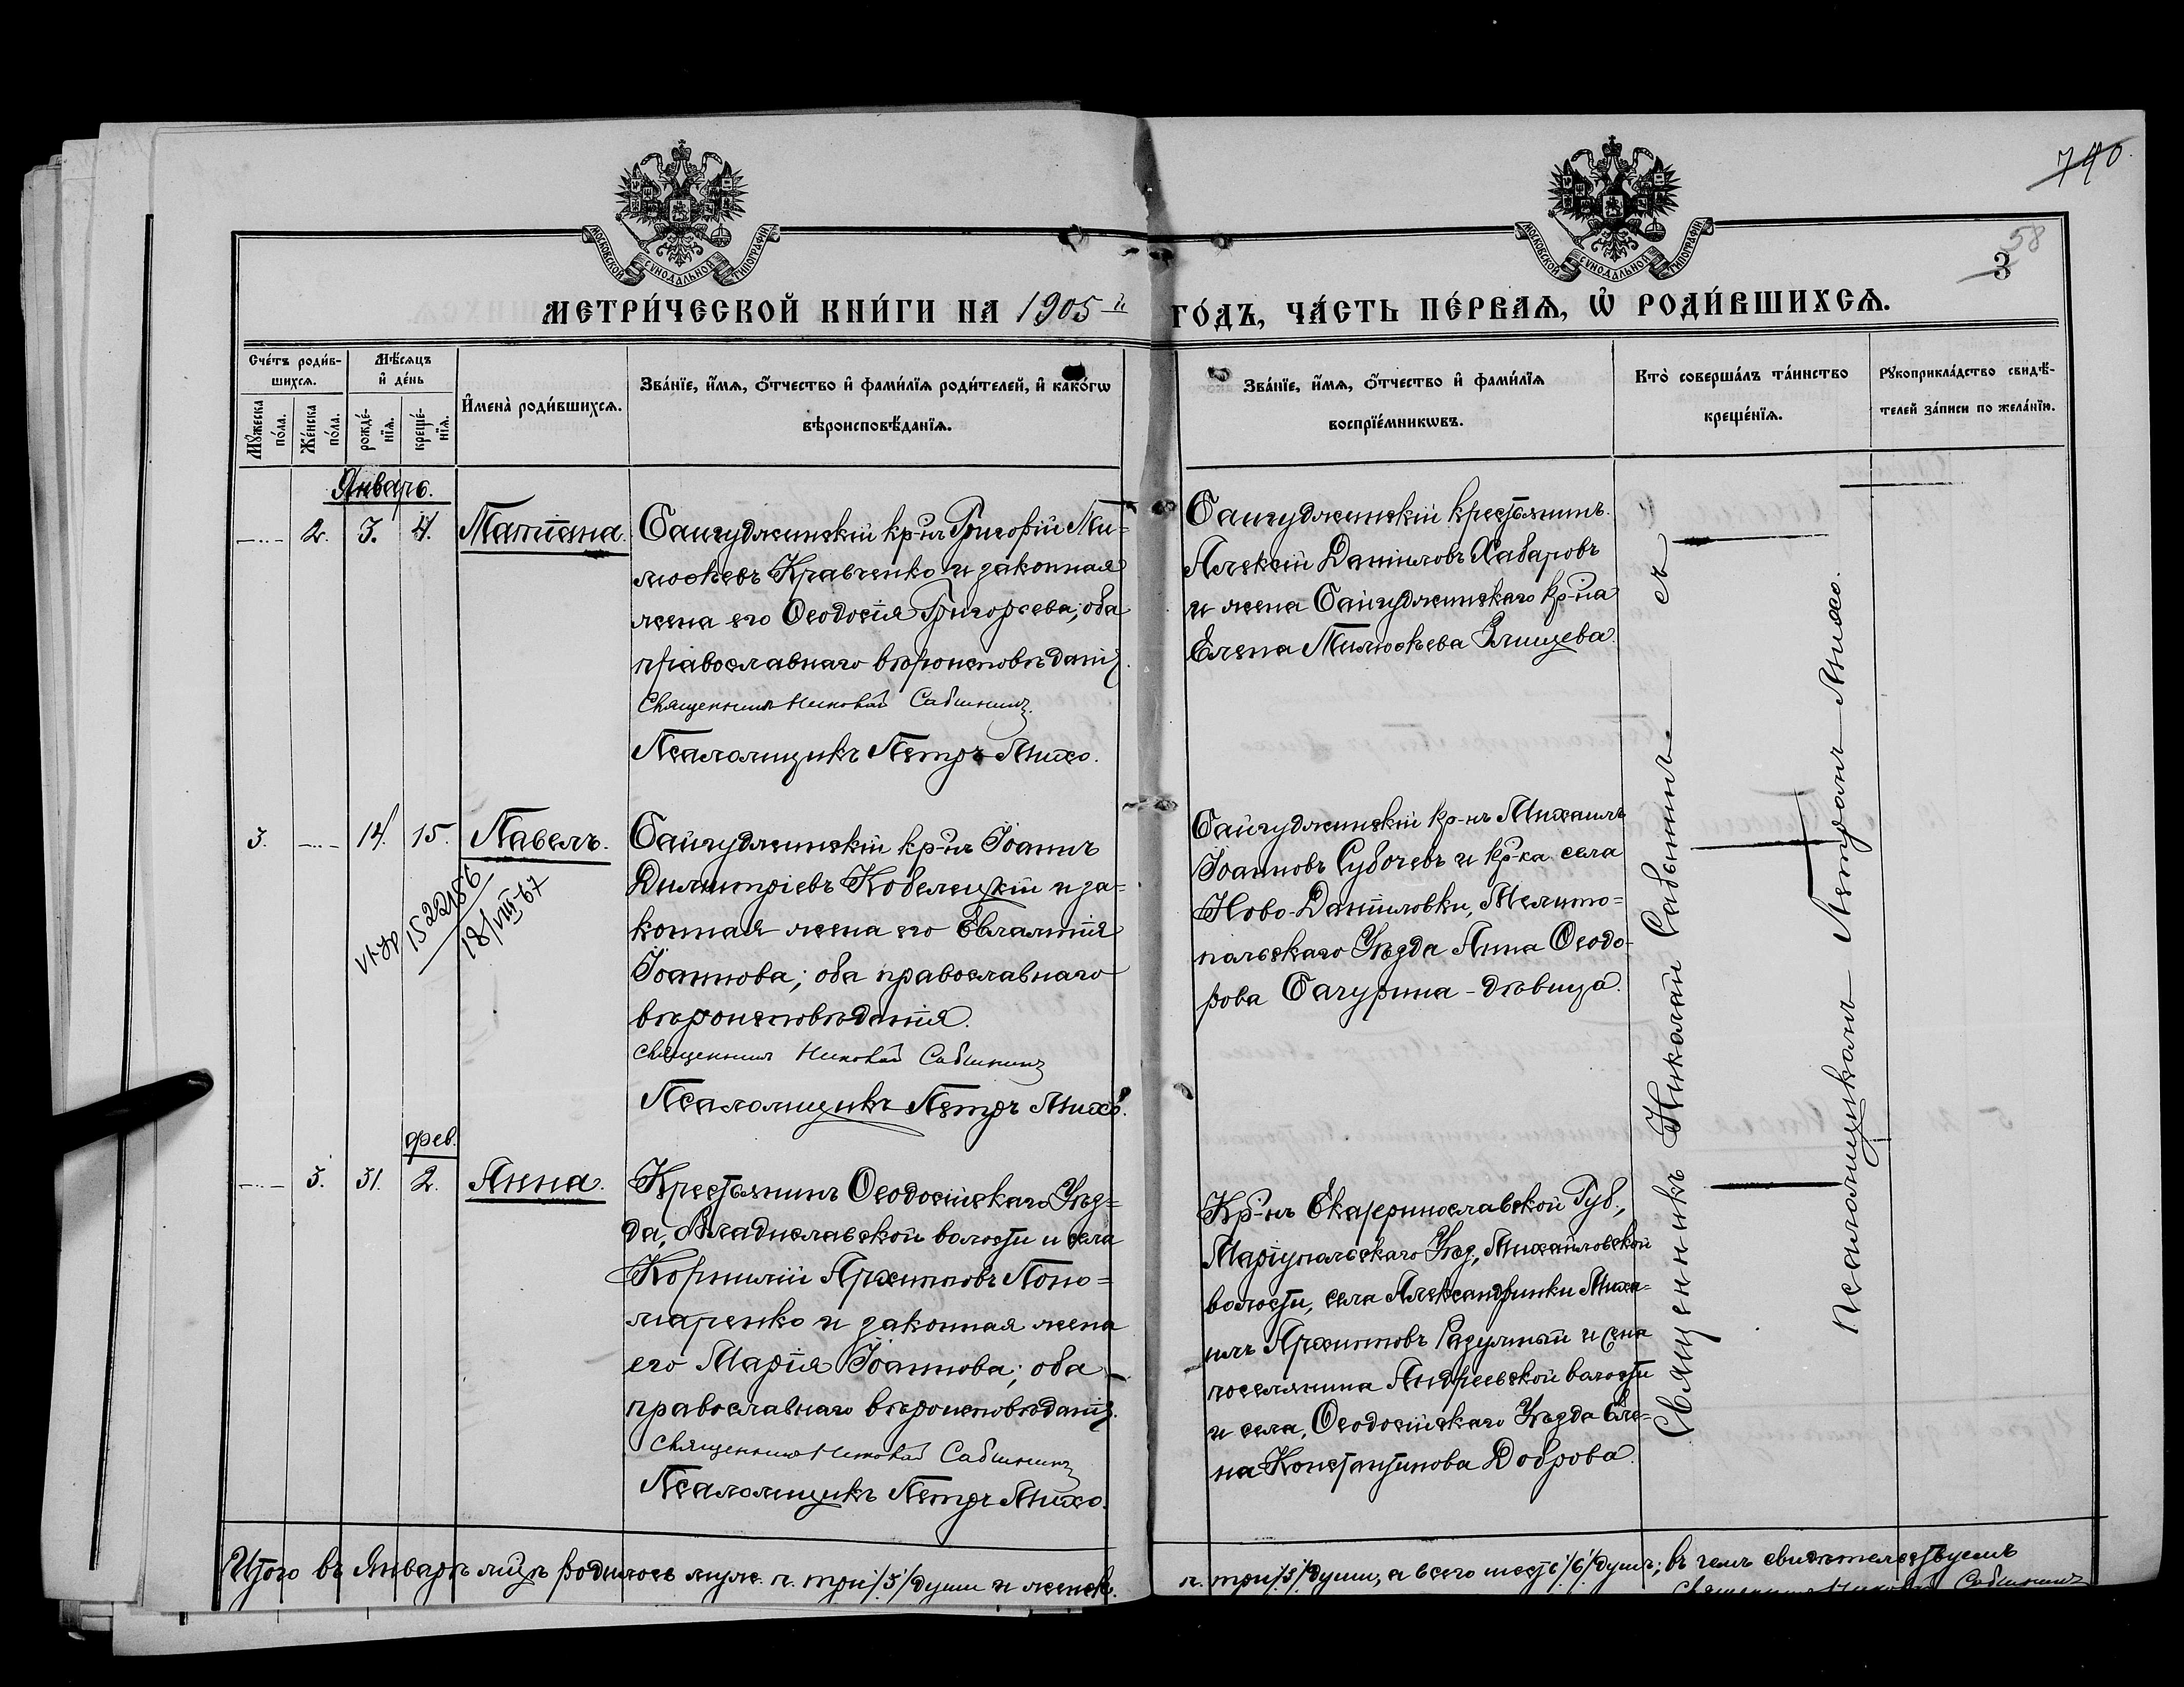 740.
58
3
МОСКОВСКОЙ СѴНОДАЛЬНОЙ ТИПОГРАФІИ
МОСКОВСКОЙ СѴНОДАЛЬНОЙ ТИПОГРАФІИ
МЕТРИ́ЧЕСКОЙ КНИ́ГИ НА 1905-й ГО́ДЪ, ЧА́СТЬ ПЕ́РВАѦ, Ѡ РОДИ́ВШИХСѦ.
Сче́тъ роди́в-
шихсѧ.
Мꙋ́жеска по́ла.
Же́нска по́ла.
Мѣ́сѧцъ
и҆ де́нь
рожде́-
нїѧ.
креще́-
нїѧ.
И҆мена̀ роди́вшихсѧ.
Зва́нїе, и҆́мѧ, ѻ҆́тчество и҆ фами́лїѧ роди́телей, и҆ како́гѡ
вѣроисповѣ́данїѧ.
Зва́нїе, и҆́мѧ, ѻ҆́тчество и҆ фами́лїѧ
воспрїе́мникѡвъ.
Кто̀ соверша́лъ та́инство
креще́нїѧ.
Рꙋкоприкла́дство свидѣ́-
телей за́писи по жела́нїю.
Январь.
2. 3. 4. Татіана.
Сайгуджинскій кр-нъ Григорій Ти-
моѳеевъ Кравченко и законная
жена его Ѳеодосія Григорьева; оба
православнаго вѣроисповѣданія.
Священникъ Николай Сабининъ
Псаломщикъ Петръ Михо.
Сайгуджинскій крестьянинъ
Алексій Даниловъ Хабаровъ
и жена Сайгуджинскаго кр-на
Елена Тимоѳеева
3. 14. 15. Павелъ.
1522186
18/VIII-67
Сайгуджинскій кр-нъ Іоаннъ
Димитріевъ Кобелецкій и за-
конная жена его Евлампія
Іоаннова; оба православнаго
вѣроисповѣданія.
Священникъ Николай Сабининъ
Псаломщикъ Петръ Михо.
Сайгуджинскій кр-нъ Михаилъ
Іоанновъ Субочевъ и кр-ка села
Ново-Даниловки, Мелито-
польскаго Уѣзда Анна Ѳеодо-
рова Сачурина - дѣвица.
фев.
3. 31. 2. Анна.
Крестьянинъ Ѳеодосійскаго Уѣз-
да, Владиславской волости и села
Корнилій Архиповъ Поно-
маренко и законная жена
его Марія Іоаннова; оба
православнаго вѣроисповѣданія.
Священникъ Николай Сабининъ
Псаломщикъ Петръ Михо.
Кр-нъ Екатеринославской Губ.,
Маріупольскаго Уѣз., Михайловской
волости, села Александринки Миха-
илъ Архиповъ Разумный и жена
поселянина Андреевской волости
и села, Ѳеодосійскаго Уѣзда Еле-
на Константинова Доброва.
Священникъ Николай Сабининъ съ
Псаломщикомъ Петромъ Михо.
Итого въ Январѣ мѣц. родилось муж. п. три /3/ души и женск.
п. три /3/ души, а всего шесть /6/ душъ; въ чемъ свидѣтельствуемъ
Священникъ Николай Сабининъ